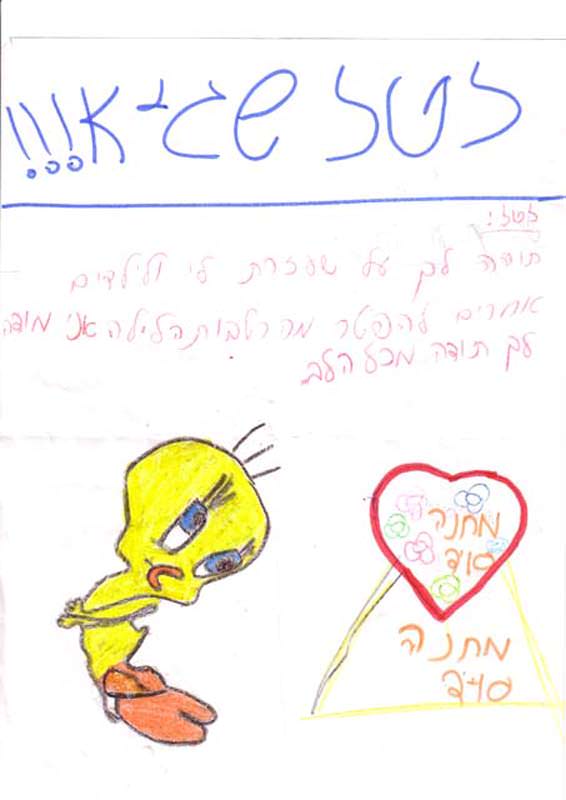 לטל שגיא!!!
לטל:
תודה לך על שעזרת לי ולילדים
אחרים להפטר מהרטבות הלילה אני מודה
לך תודה מכל הלב.
מחנה
סודי
מחנה
סודי